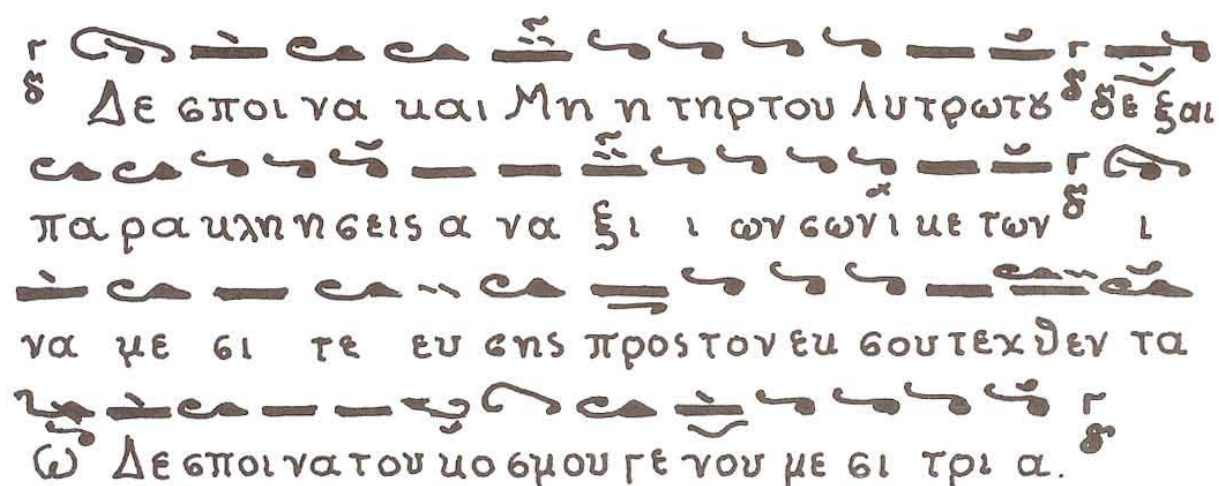 Δε σποι να και Μη η τηρ του Λυ τρω τȣ δε ξαι
πα ρα κλη η σεις α να ξι ι ων σων ι κε των ι
να με σι τε ευ σης προς τον εκ σου τεχ θεν τα
Ω Δε σποι να του κο σμου γε νου με σι τρι α.